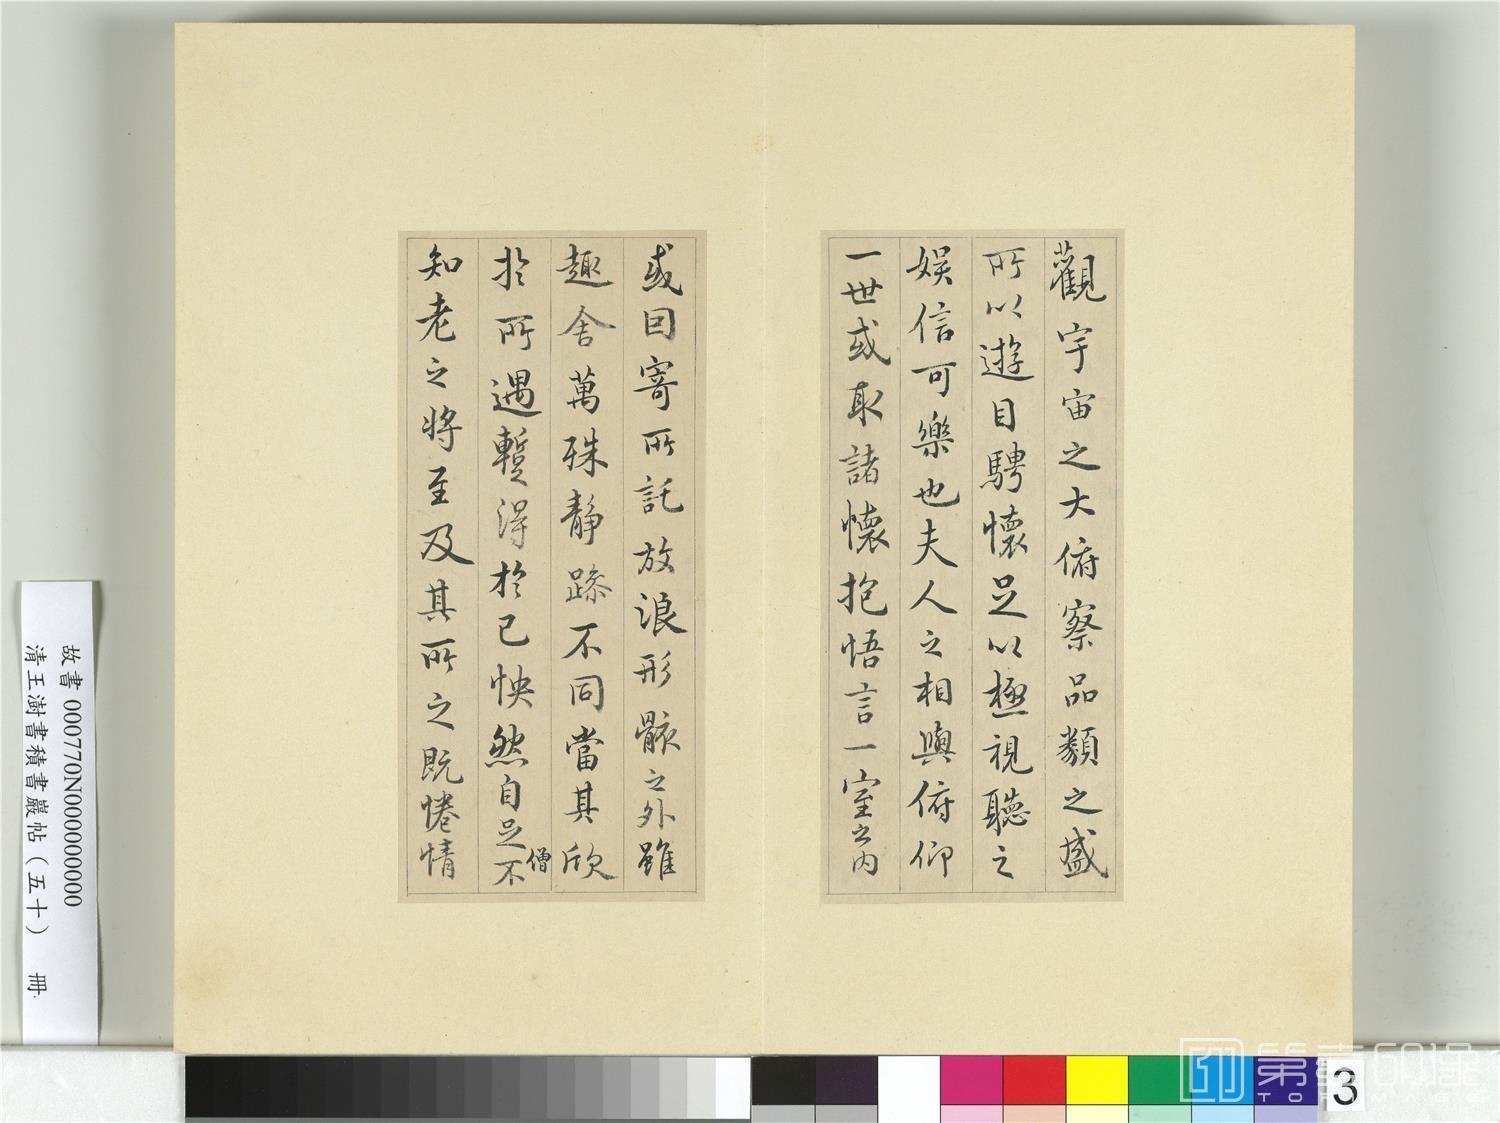 觀宇宙之大俯察品類之盛
所以遊目騁懷足以極視聽之
娛信可樂也夫人之相與俯仰
一世或取諸懷抱悟言一室之內
或因寄所託放浪形骸之外雖
趣舍萬殊靜躁不同當其欣
於所遇暫得於己怏然自足不
僧
知老之將至及其所之既惓情
故書 000770N000000000
清王澍書積書巖帖（五十） 冊
3
第壹印像
TOP IMAGE